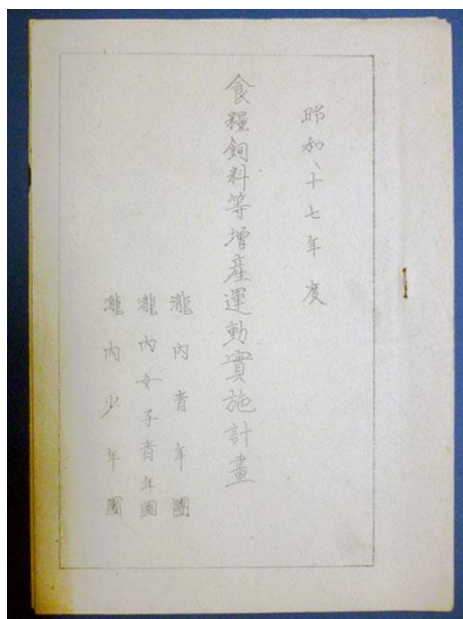 昭和十七年度
食糧飼料等增産運動實施計畫
瀧内青年團
瀧内女子青年團
瀧内少年團